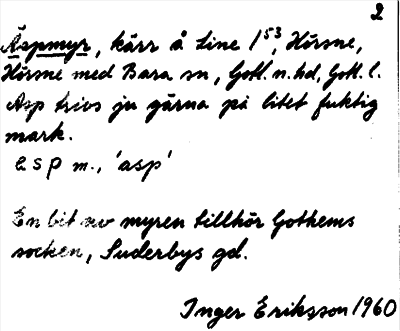 2
Äspmyr, kärr å Line 1⁵³, Hörsne,
Hörsne med Bara sn, Gotl. n. hd, Gotl. l.
Asp trivs ju gärna på litet fuktig
mark.
esp m., 'asp'
En bit av myren tillhör Gothems
socken, Suderbys gd.
Inger Eriksson 1960